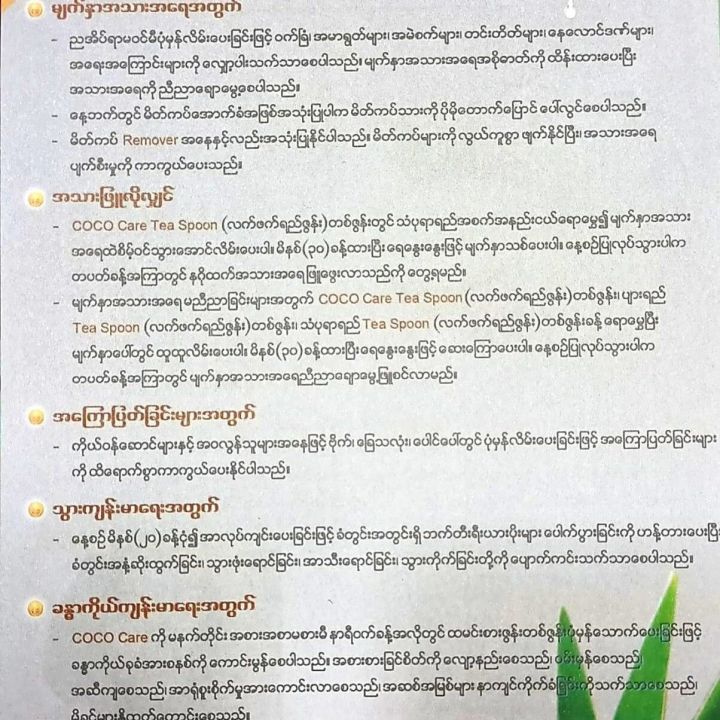 မျက်နှာအသားအရေအတွက်
- ညအိပ်ရာမဝင်မီပုံမှန်လိမ်းပေးခြင်းဖြင့် ဝက်ခြံ၊ အမာရွတ်များ၊ အမဲစက်များ၊ တင်းတိတ်များ၊ နေလောင်ဒဏ်များ၊
အရေးအကြောင်းများကို လျှော့ပါးသက်သာစေပါသည်။ မျက်နှာအသားအရေအစိုဓာတ်ကို ထိန်းထားပေးပြီး
အသားအရေကို ညီညာချောမွေ့စေပါသည်။
- နေ့ဘက်တွင် မိတ်ကပ်အောက်ခံအဖြစ်အသုံးပြုပါက မိတ်ကပ်သားကို ပိုမိုတောက်ပြောင် ပေါ်လွင်စေပါသည်။
- မိတ်ကပ် Remover အနေနှင့်လည်းအသုံးပြုနိုင်ပါသည်။ မိတ်ကပ်များကို လွယ်ကူစွာ ဖျက်နိုင်ပြီး၊ အသားအရေ
ပျက်စီးမှုကို ကာကွယ်ပေးသည်။
အသားဖြူလိုလျှင်
- COCO Care Tea Spoon (လက်ဖက်ရည်ဇွန်း) တစ်ဇွန်းတွင် သံပုရာရည်အစက်အနည်းငယ်ရောမွှေ၍ မျက်နှာအသား
အရေထဲစိမ့်ဝင်သွားအောင်လိမ်းပေးပါ။ မိနစ်(၃၀)ခန့်ထားပြီး ရေနွေးနွေးဖြင့် မျက်နှာသစ်ပေးပါ။ နေ့စဉ်ပြုလုပ်သွားပါက
တပတ်ခန့်အကြာတွင် နဂိုထက်အသားအရေဖြူဖွေးလာသည်ကို တွေ့ရမည်။
- မျက်နှာအသားအရေ မညီညာခြင်းများအတွက် COCO Care Tea Spoon (လက်ဖက်ရည်ဇွန်း) တစ်ဇွန်း၊ ပျားရည်
Tea Spoon (လက်ဖက်ရည်ဇွန်း) တစ်ဇွန်း၊ သံပုရာရည် Tea Spoon (လက်ဖက်ရည်ဇွန်း) တစ်ဇွန်းခန့် ရောမွှေပြီး
မျက်နှာပေါ်တွင် ထူထူလိမ်းပေးပါ။ မိနစ်(၃၀)ခန့်ထားပြီးရေနွေးနွေးဖြင့် ဆေးကြောပေးပါ။ နေ့စဉ်ပြုလုပ်သွားပါက
တပတ်ခန့်အကြာတွင် မျက်နှာအသားအရေညီညာချောမွေ့ဖြူစင်လာမည်။
အကြောပြတ်ခြင်းများအတွက်
- ကိုယ်ဝန်ဆောင်များနှင့် အဝလွန်သူများအနေဖြင့် ဗိုက်၊ ခြေသလုံး၊ ပေါင်ပေါ်တွင် ပုံမှန်လိမ်းပေးခြင်းဖြင့် အကြောပြတ်ခြင်းများ
ကို ထိရောက်စွာကာကွယ်ပေးနိုင်ပါသည်။
သွားကျန်းမာရေးအတွက်
- နေ့စဉ် မိနစ်(၂၀)ခန့်ငုံ၍ အာလုပ်ကျင်းပေးခြင်းဖြင့် ခံတွင်းအတွင်းရှိ ဘက်တီးရီးယားပိုးများ ပေါက်ပွားခြင်းကို ဟန့်တားပေးပြီး
ခံတွင်းအနံ့ဆိုးထွက်ခြင်း၊ သွားဖုံးရောင်ခြင်း၊ အာသီးရောင်ခြင်း၊ သွားကိုက်ခြင်းတို့ကို ပျောက်ကင်းသက်သာစေပါသည်။
ခန္ဓာကိုယ်ကျန်းမာရေးအတွက်
- COCO Care ကို မနက်တိုင်း အစားအစာမစားမီ နာရီဝက်ခန့်အလိုတွင် ထမင်းစားဇွန်းတစ်ဇွန်းပုံမှန်သောက်ပေးခြင်းဖြင့်
ခန္ဓာကိုယ်ခုခံအားစနစ်ကို ကောင်းမွန်စေပါသည်။ အစားစားခြင်စိတ်ကို လျော့နည်းစေသည်၊ ဝမ်းမှန်စေသည်၊
အဆီကျစေသည်၊ အာရုံစူးစိုက်မှုအားကောင်းလာစေသည်၊ အဆစ်အမြစ်များ နာကျင်ကိုက်ခဲခြင်းကိုသက်သာစေသည်၊